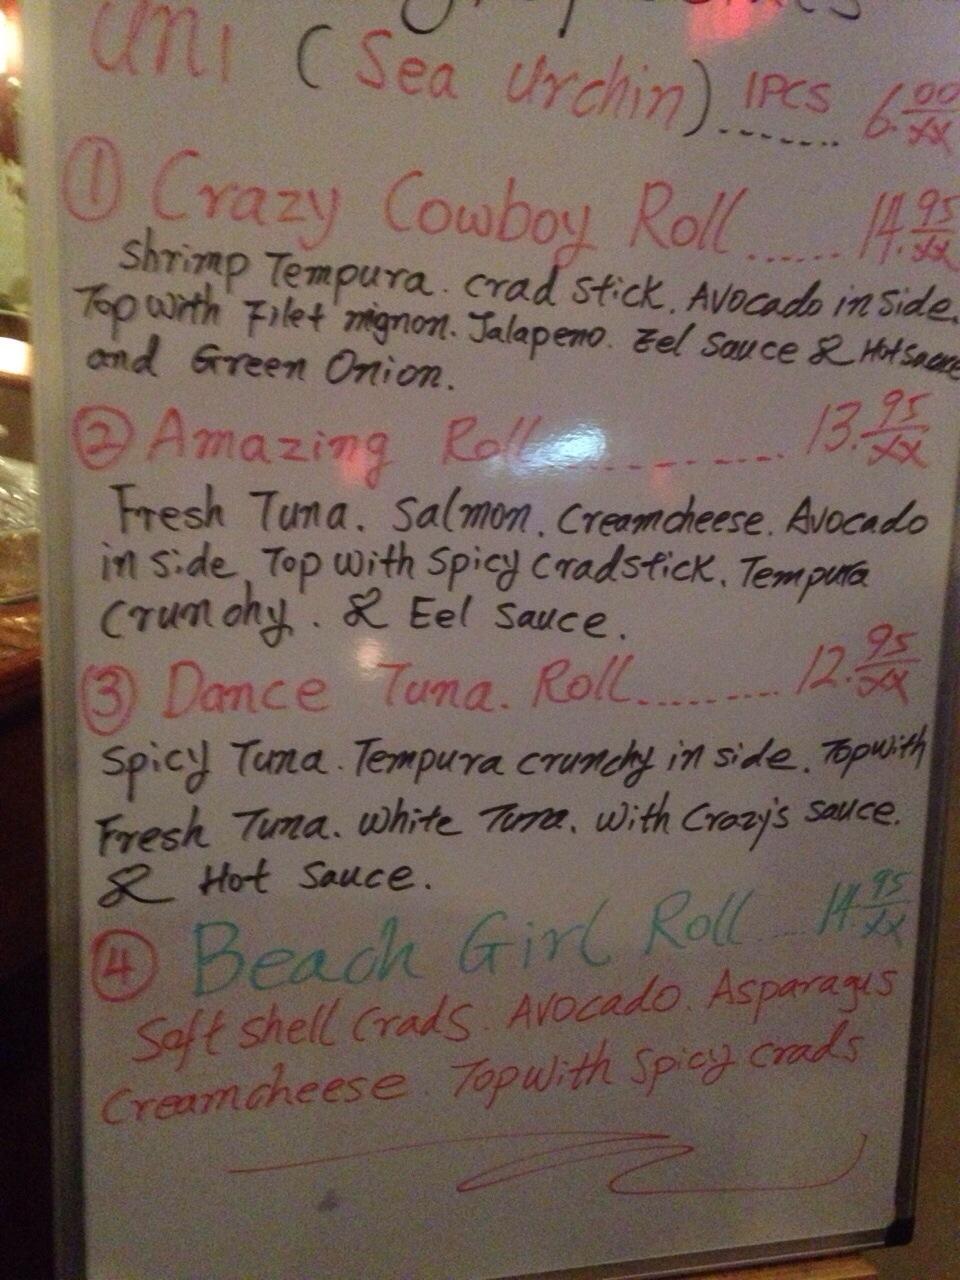 Uni (Sea Urchin) 1PCS ....... 6.00/xx
① Crazy Cowboy Roll ...... 14.95/xx
Shrimp Tempura. Crad Stick. Avocado in side.
Top with Filet mignon. Jalapeno. Eel Sauce & Hot Sauce
and Green Onion.
② Amazing Roll .......... 13.95/xx
Fresh Tuna. Salmon. Creamcheese. Avocado
in side, Top with Spicy Cradstick. Tempura
Crunchy. & Eel Sauce.
③ Dance Tuna. Roll......... 12.95/xx
Spicy Tuna. Tempura crunchy in side. Topwith
Fresh Tuna. White Tuna. With Crazy's Sauce.
& Hot Sauce.
④ Beach Girl Roll .... 14.95/xx
Soft shell Crads. Avocado. Asparagus
Creamcheese. Topwith Spicy crads